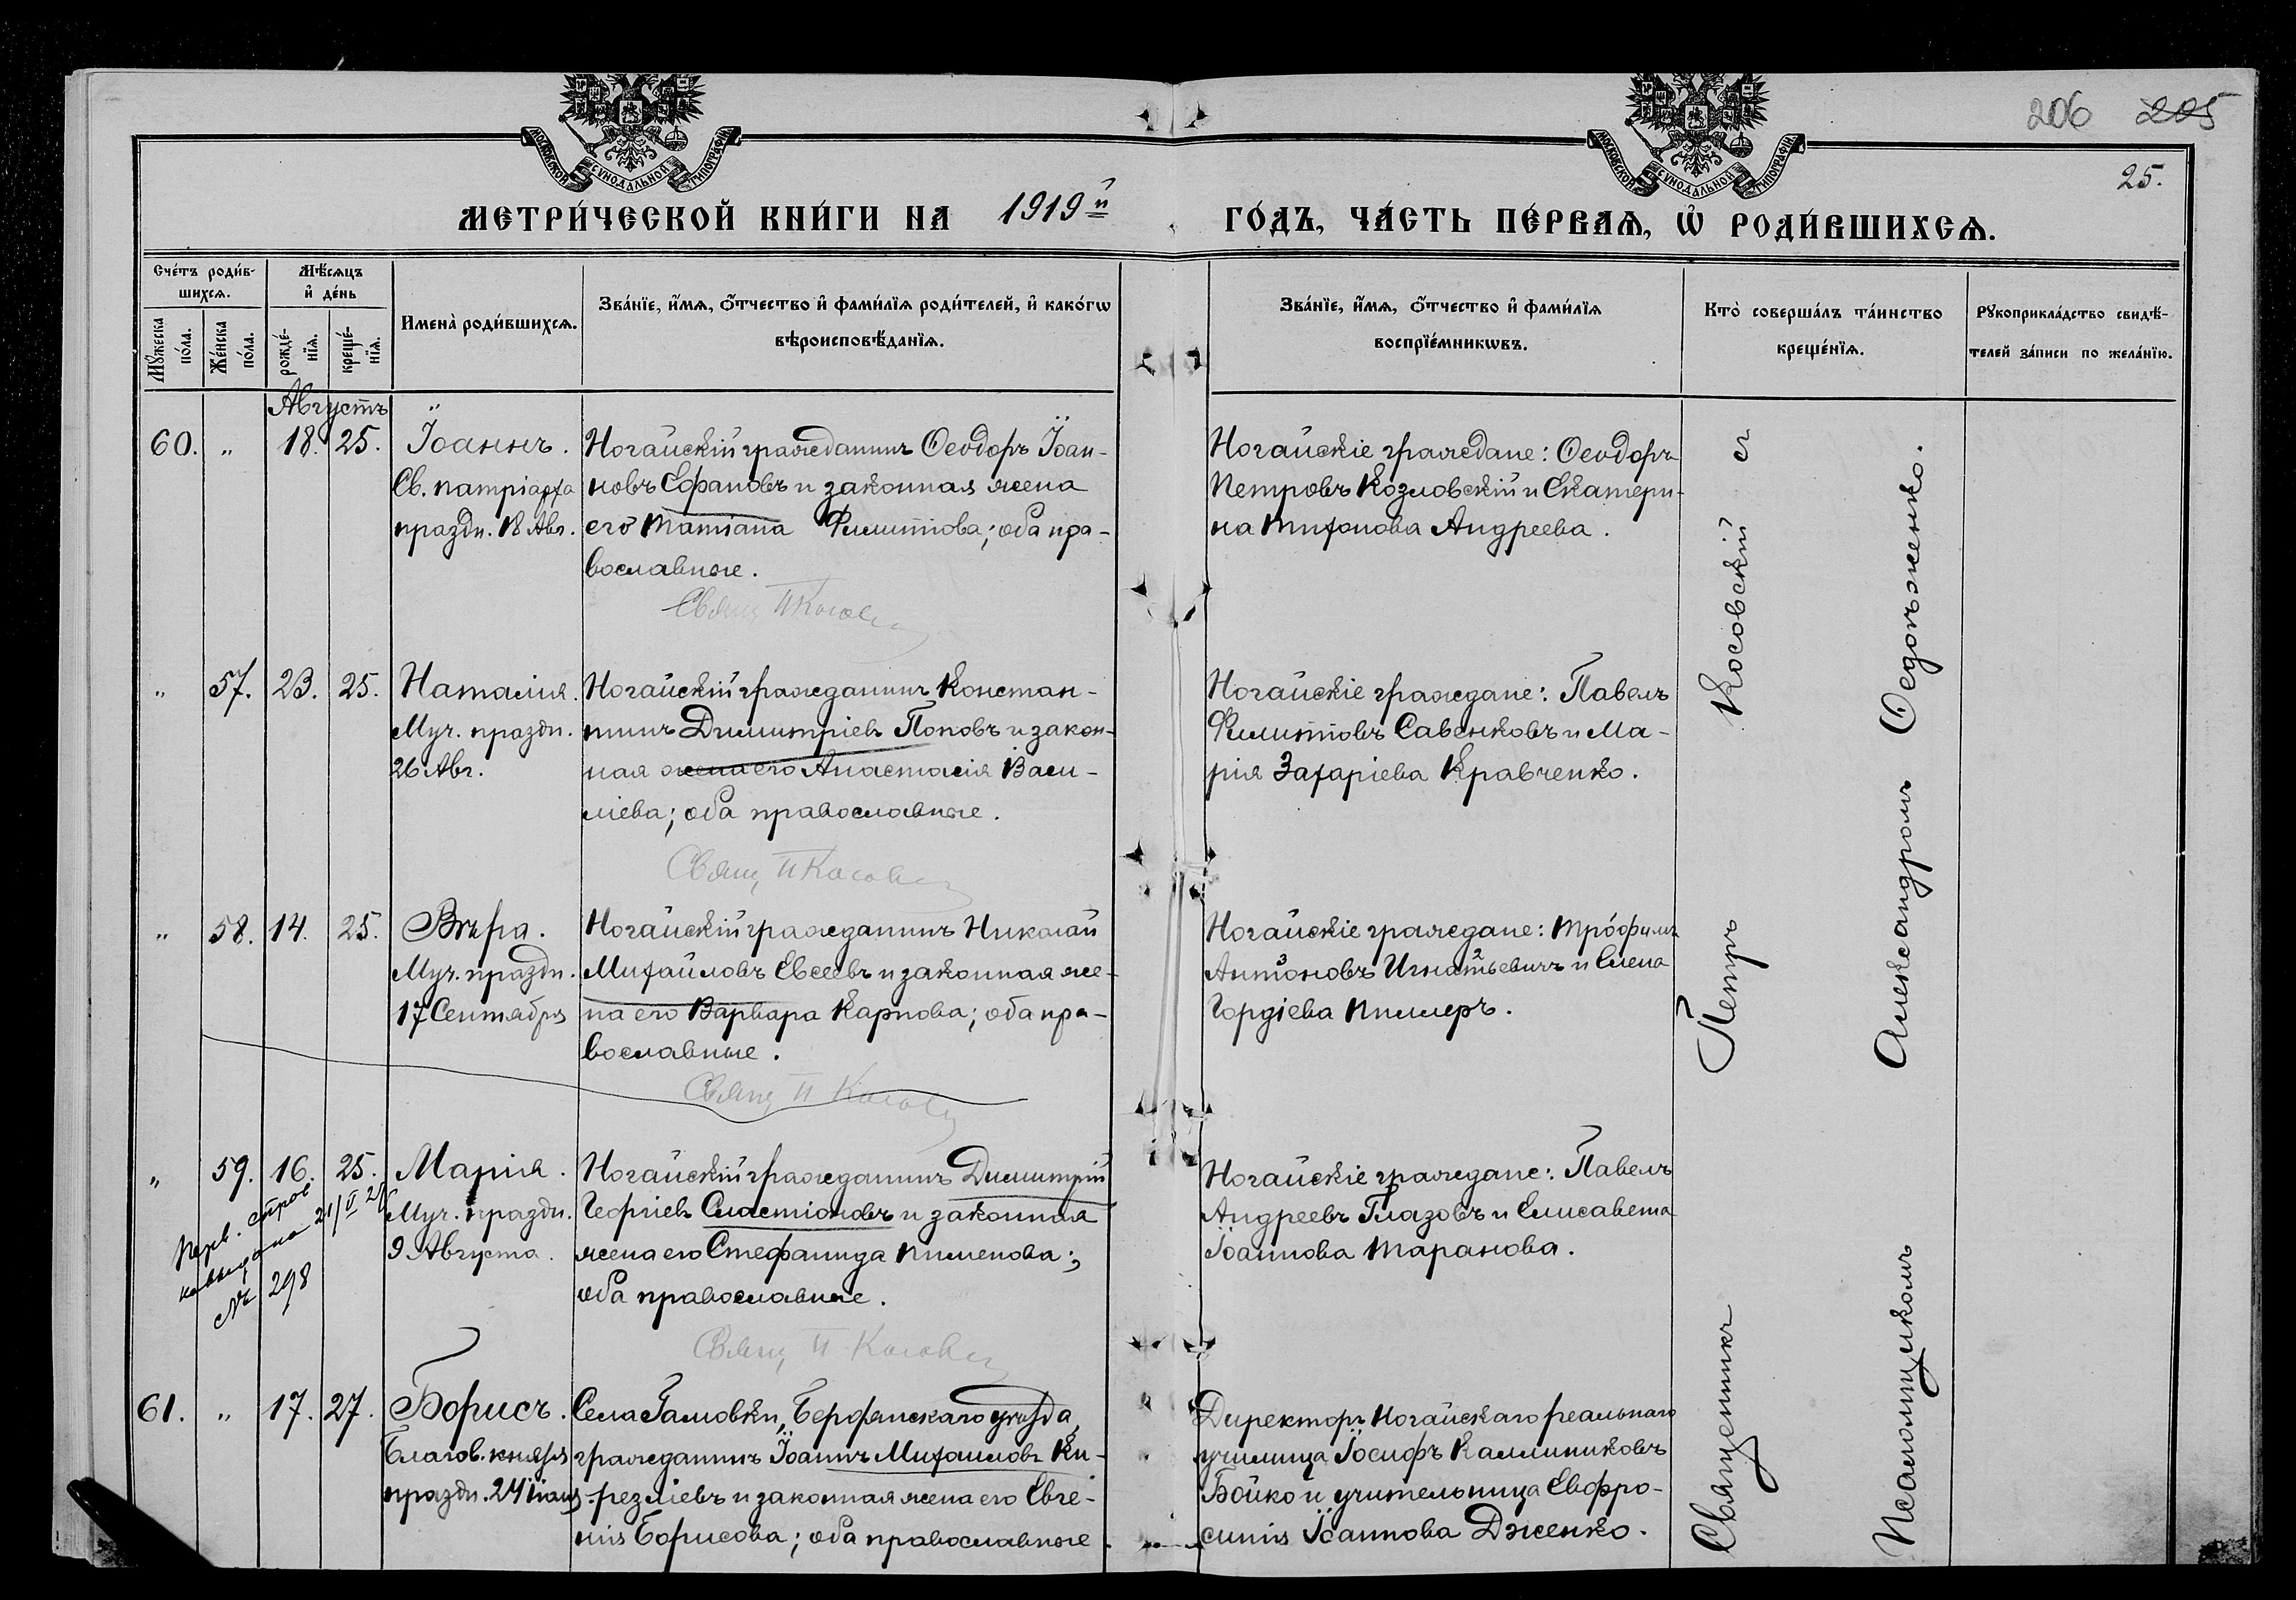 206 205
25.
МОСКОВСКОЙ СѴНОДАЛЬНОЙ ТИПОГРАФІИ
МОСКОВСКОЙ СѴНОДАЛЬНОЙ ТИПОГРАФІИ
МЕТРИ́ЧЕСКОЙ КНИ́ГИ НА 1919й ГО́ДЪ, ЧА́СТЬ ПЕ́РВАѦ, Ѿ РОДИ́ВШИХСѦ.
Сче́тъ роди́в-
шихсѧ.
Мꙋ́жеска
по́ла.
Же́нска
по́ла.
Мѣ́сѧцъ
и҆ де́нь
рожде́-
нїѧ.
креще́-
нїѧ.
Имена̀ роди́вшихсѧ.
Зва́нїе, и҆́мѧ, ѻ҆́тчество и҆ фами́лїѧ роди́телей, и҆ како́гѡ
вѣроисповѣ́данїѧ.
Зва́нїе, и҆́мѧ, ѻ҆́тчество и҆ фами́лїѧ
воспрїе́мникѡвъ.
Кто̀ соверша́лъ та́инство
креще́нїѧ.
Рꙋкоприкла́дство свидѣ́-
телей за́писи по жела́нїю.
Августъ
60. " 18. 25.
Іоаннъ.
Св. патріарха
праздн. 18 Авг.
Ногайскій гражданинъ Ѳеодоръ Іоан-
новъ Ефановъ и законная жена
его Татіана Филиппова; оба пра-
вославные.
Свящ П Косовск
Ногайскіе граждане: Ѳеодоръ
Петровъ Козловскій и Екатери-
на Тихонова Андреева.
" 57. 23. 25.
Наталія.
Муч. праздн.
26 Авг.
Ногайскій гражданинъ Констан-
тинъ Димитріевъ Поповъ и закон-
ная жена его Анастасія Васи-
ліева; оба православные.
Свящ П Косовск
Ногайскіе граждане: Павелъ
Филипповъ Савенковъ и Ма-
рія Захаріева Кравченко.
" 58. 14. 25.
Вѣра.
Муч. праздн.
17 Сентября
Ногайскій гражданинъ Николай
Михайловъ Евсеевъ и законная же-
на его Варвара Карпова; оба пра-
вославные.
Свящ П Косовск
Ногайскіе граждане: Трофимъ
Антоновъ Игнатьевичъ и Елена
Гордіева Пиллеръ.
" 59. 16. 25.
Марія.
Муч. праздн.
9 Августа.
Ногайскій гражданинъ Димитрій
Георгіевъ Сластіоновъ и законная
жена его Стефанида Пименова;
оба православные.
Свящ П Косовск
Ногайскіе граждане: Павелъ
Андреевъ Глазовъ и Елисавета
Іоаннова Таранова.
№ 298
61. " 17. 27.
Борисъ.
Благов. князя
праздн. 24 іюля
Села Гамовки, Бердянскаго уѣзда,
гражданинъ Іоаннъ Михаиловъ Ки-
резліевъ и законная жена его Евге-
нія Борисова; оба православные
Директоръ Ногайскаго реальнаго
училища Іосифъ Каллиниковъ
Бойко и учительница Евфро-
синія Іоаннова Дженко.
Священникъ Петръ Косовскій съ
Псаломщикомъ Александромъ Ѳедорженко.